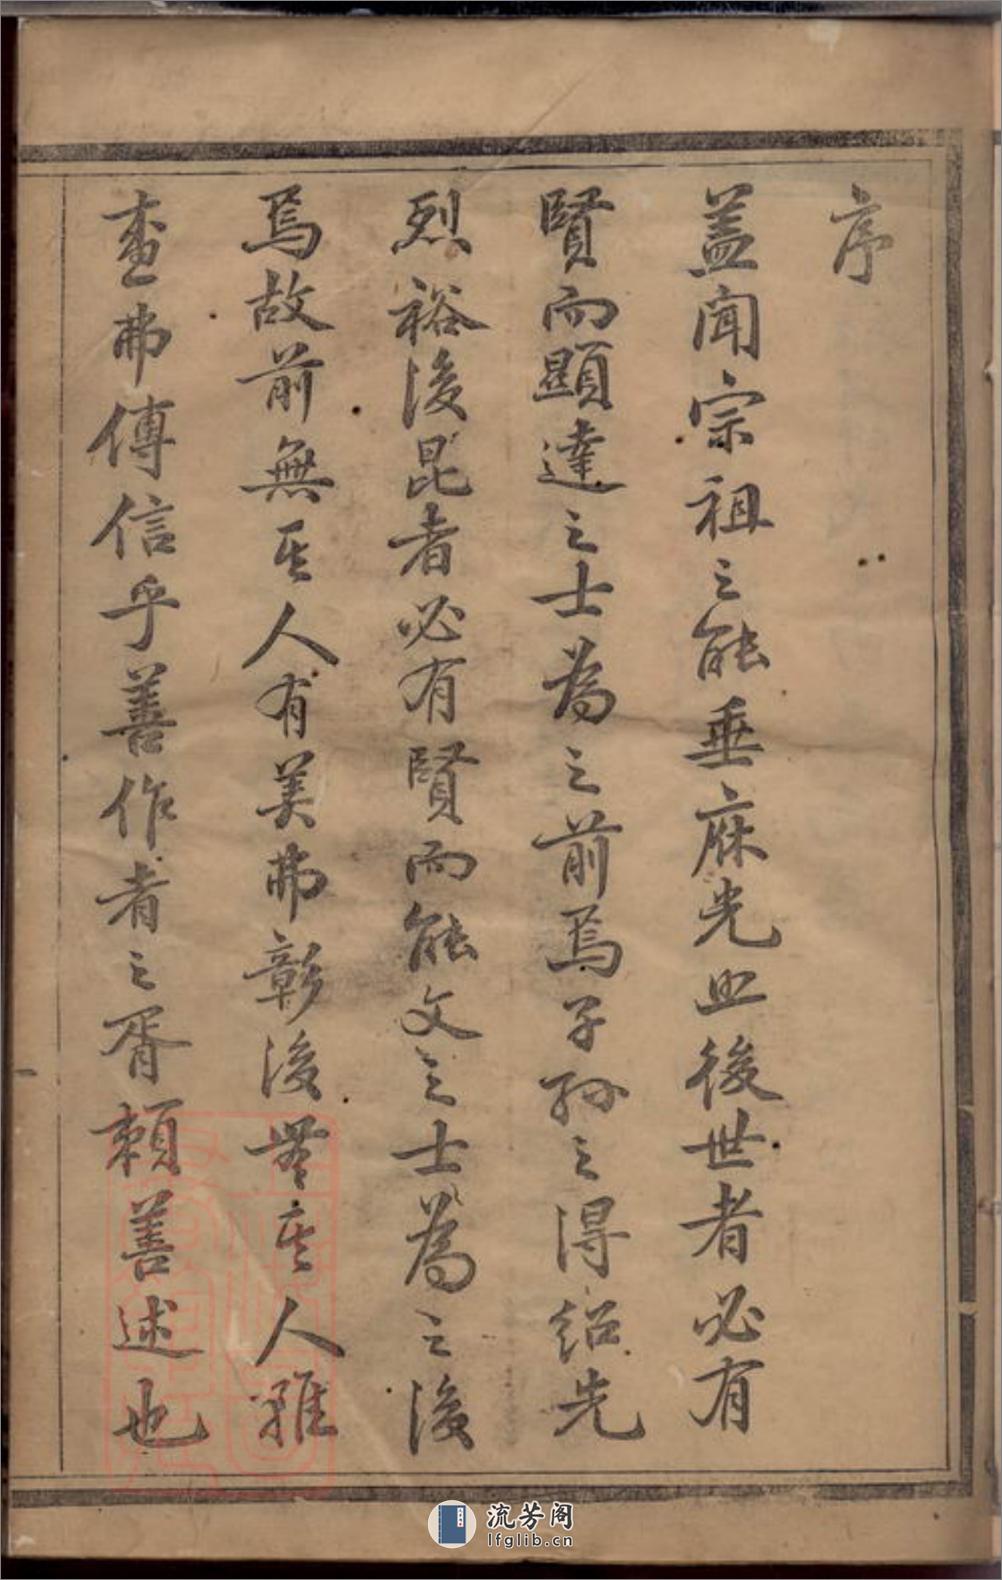 序
蓋聞宗祖之能垂庥光
照後世者必有
賢而顯達之士為之前焉子孫之得紹先
烈裕後昆者必有賢而能文之士為之後
焉故前無其人有美弗彰後無其人雖
盛弗傳信乎善作者之胥賴善述也
流芳阁
lfglib.cn